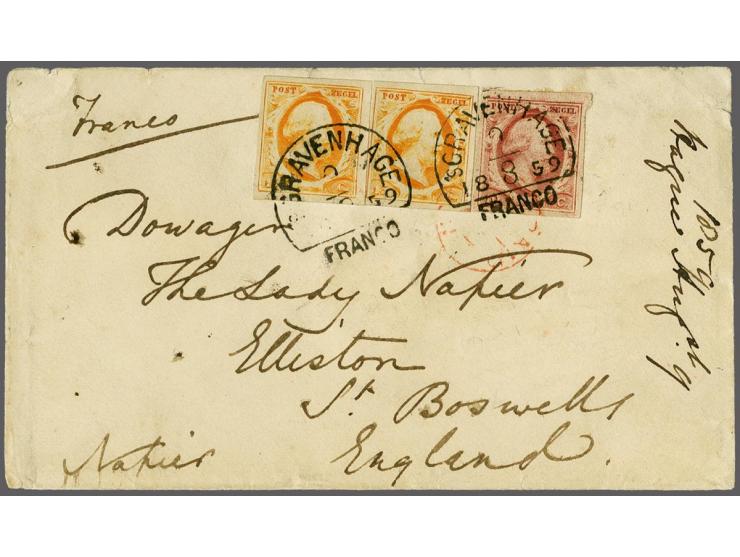 Franco
POST ZEGEL
POST ZEGEL
POST ZEGEL
'SGRAVENHAGE
FRANCO
'SGRAVENHAGE
9
8
18 59
FRANCO
Dowager
The Lady Napier
Elliston
St. Boswells
England.
Napier
1859
Hague Augst. 9